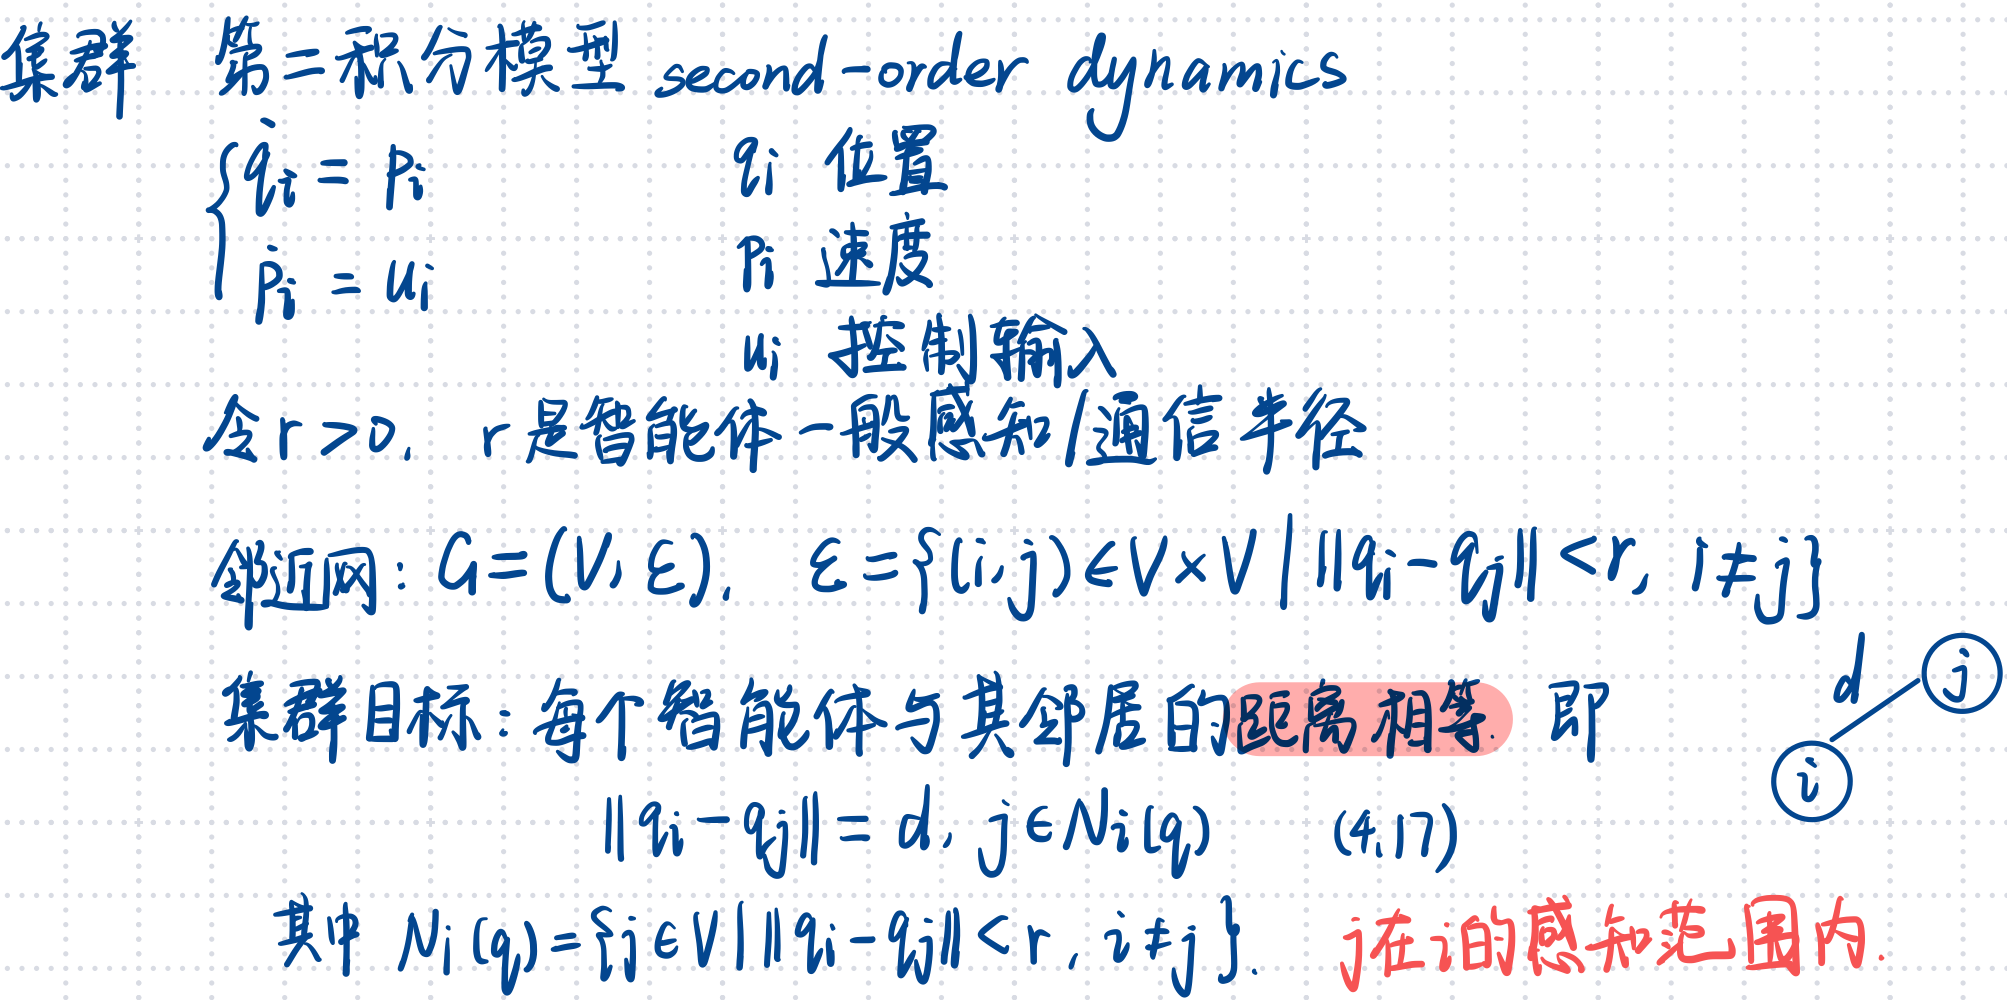 集群 第二积分模型 second-order dynamics
{ q̇i = pi qi 位置
ṗi = ui pi 速度
ui 控制输入
令r>0, r是智能体一般感知/通信半径
邻近网: G=(V, ε), ε={(i,j)∈V×V | ||qi-qj||<r, i≠j}
集群目标:每个智能体与其邻居的距离相等. 即
d j
i
||qi-qj||=d, j∈Ni(q) (4.17)
其中 Ni(q)={j∈V | ||qi-qj||<r, i≠j}. j在i的感知范围内.